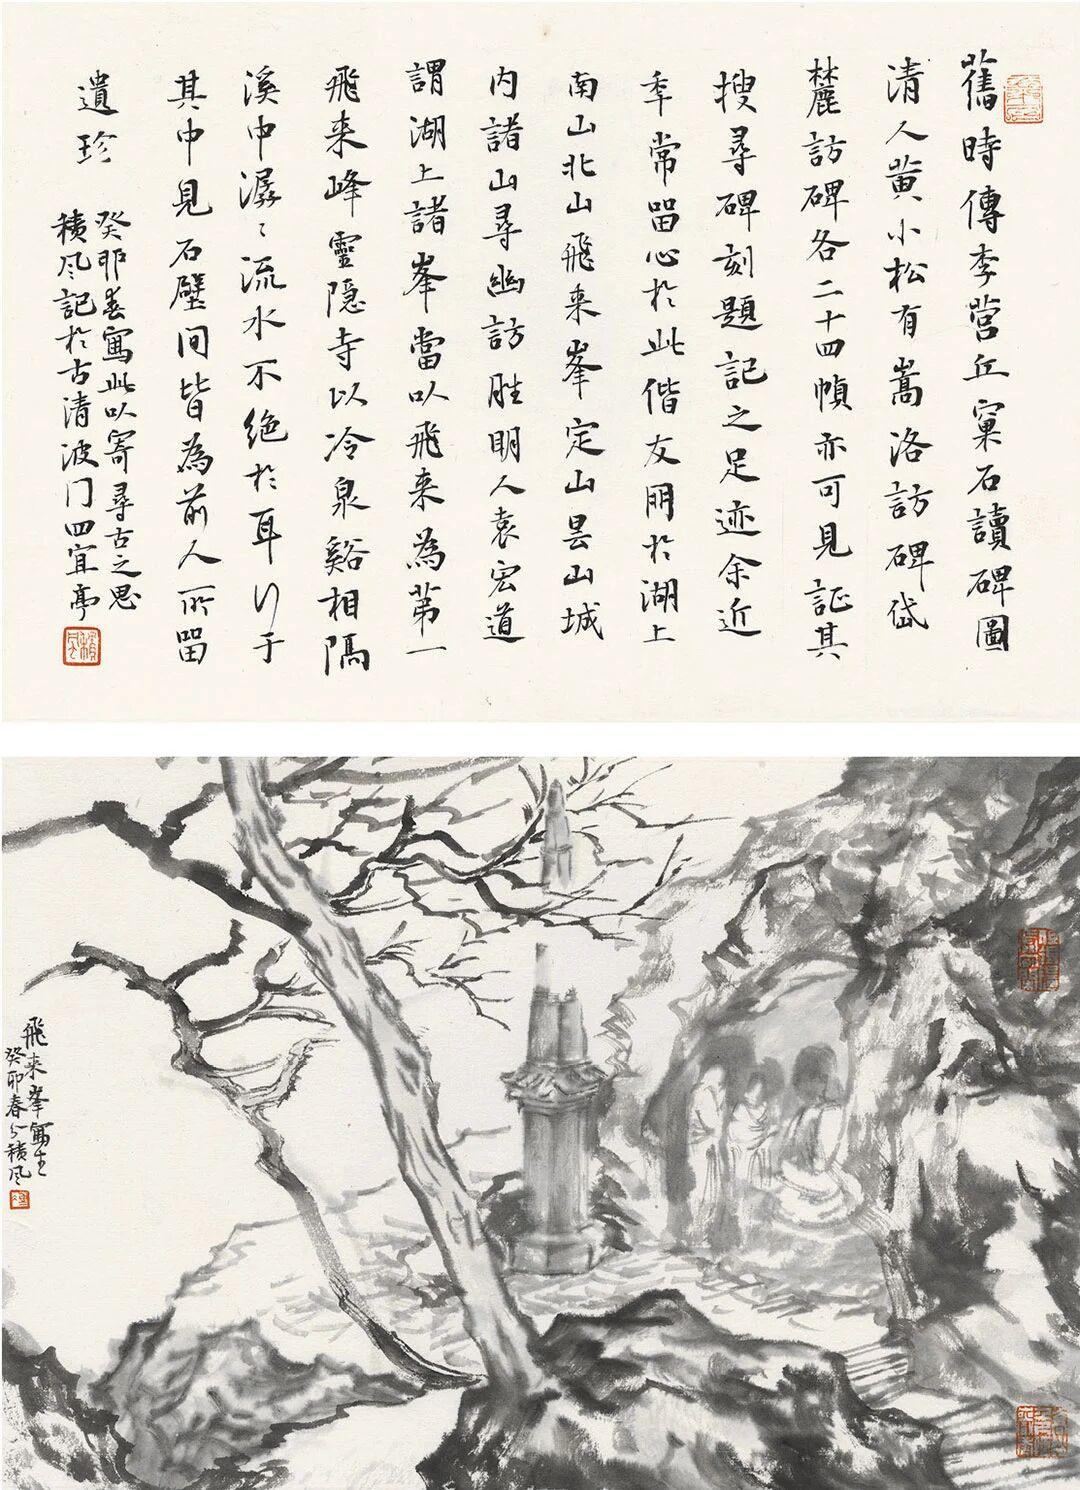 舊時傳李營丘窠石讀碑圖
清人黄小松有嵩洛訪碑岱
麓訪碑各二十四幀亦可見証其
搜尋碑刻題記之足迹余近
年常留心於此偕友朋於湖上
南山北山飛来峯定山昙山城
内諸山尋幽訪胜明人袁宏道
謂湖上諸峯當以飛来為第一
飛来峰靈隐寺以冷泉谿相隔
溪中潺〻流水不绝於耳行于
其中見石壁间皆為前人所留
遺珍
癸卯春寫此以寄尋古之思
積风記於古清波门四宜亭
飛来峯寫生
癸卯春分積风